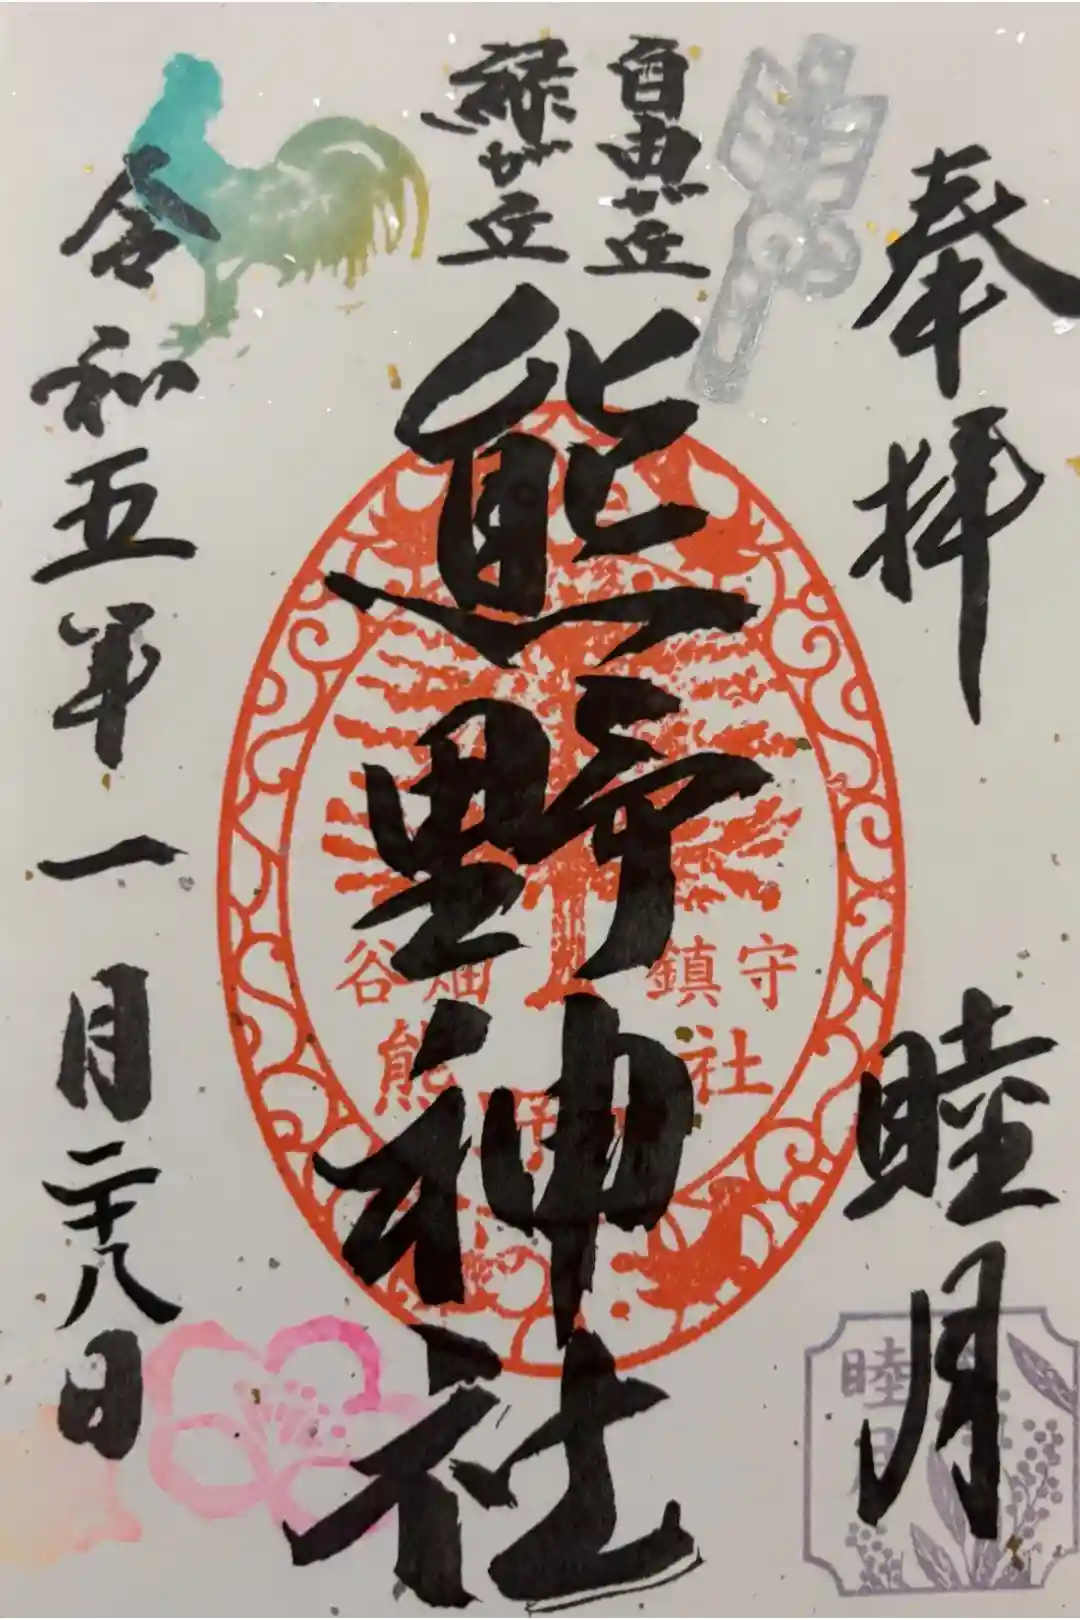 奉拝
睦月
自由が丘
緑が丘
熊野神社
令和五年一月二十八日
谷畑
鎮守
熊野
社
睦月